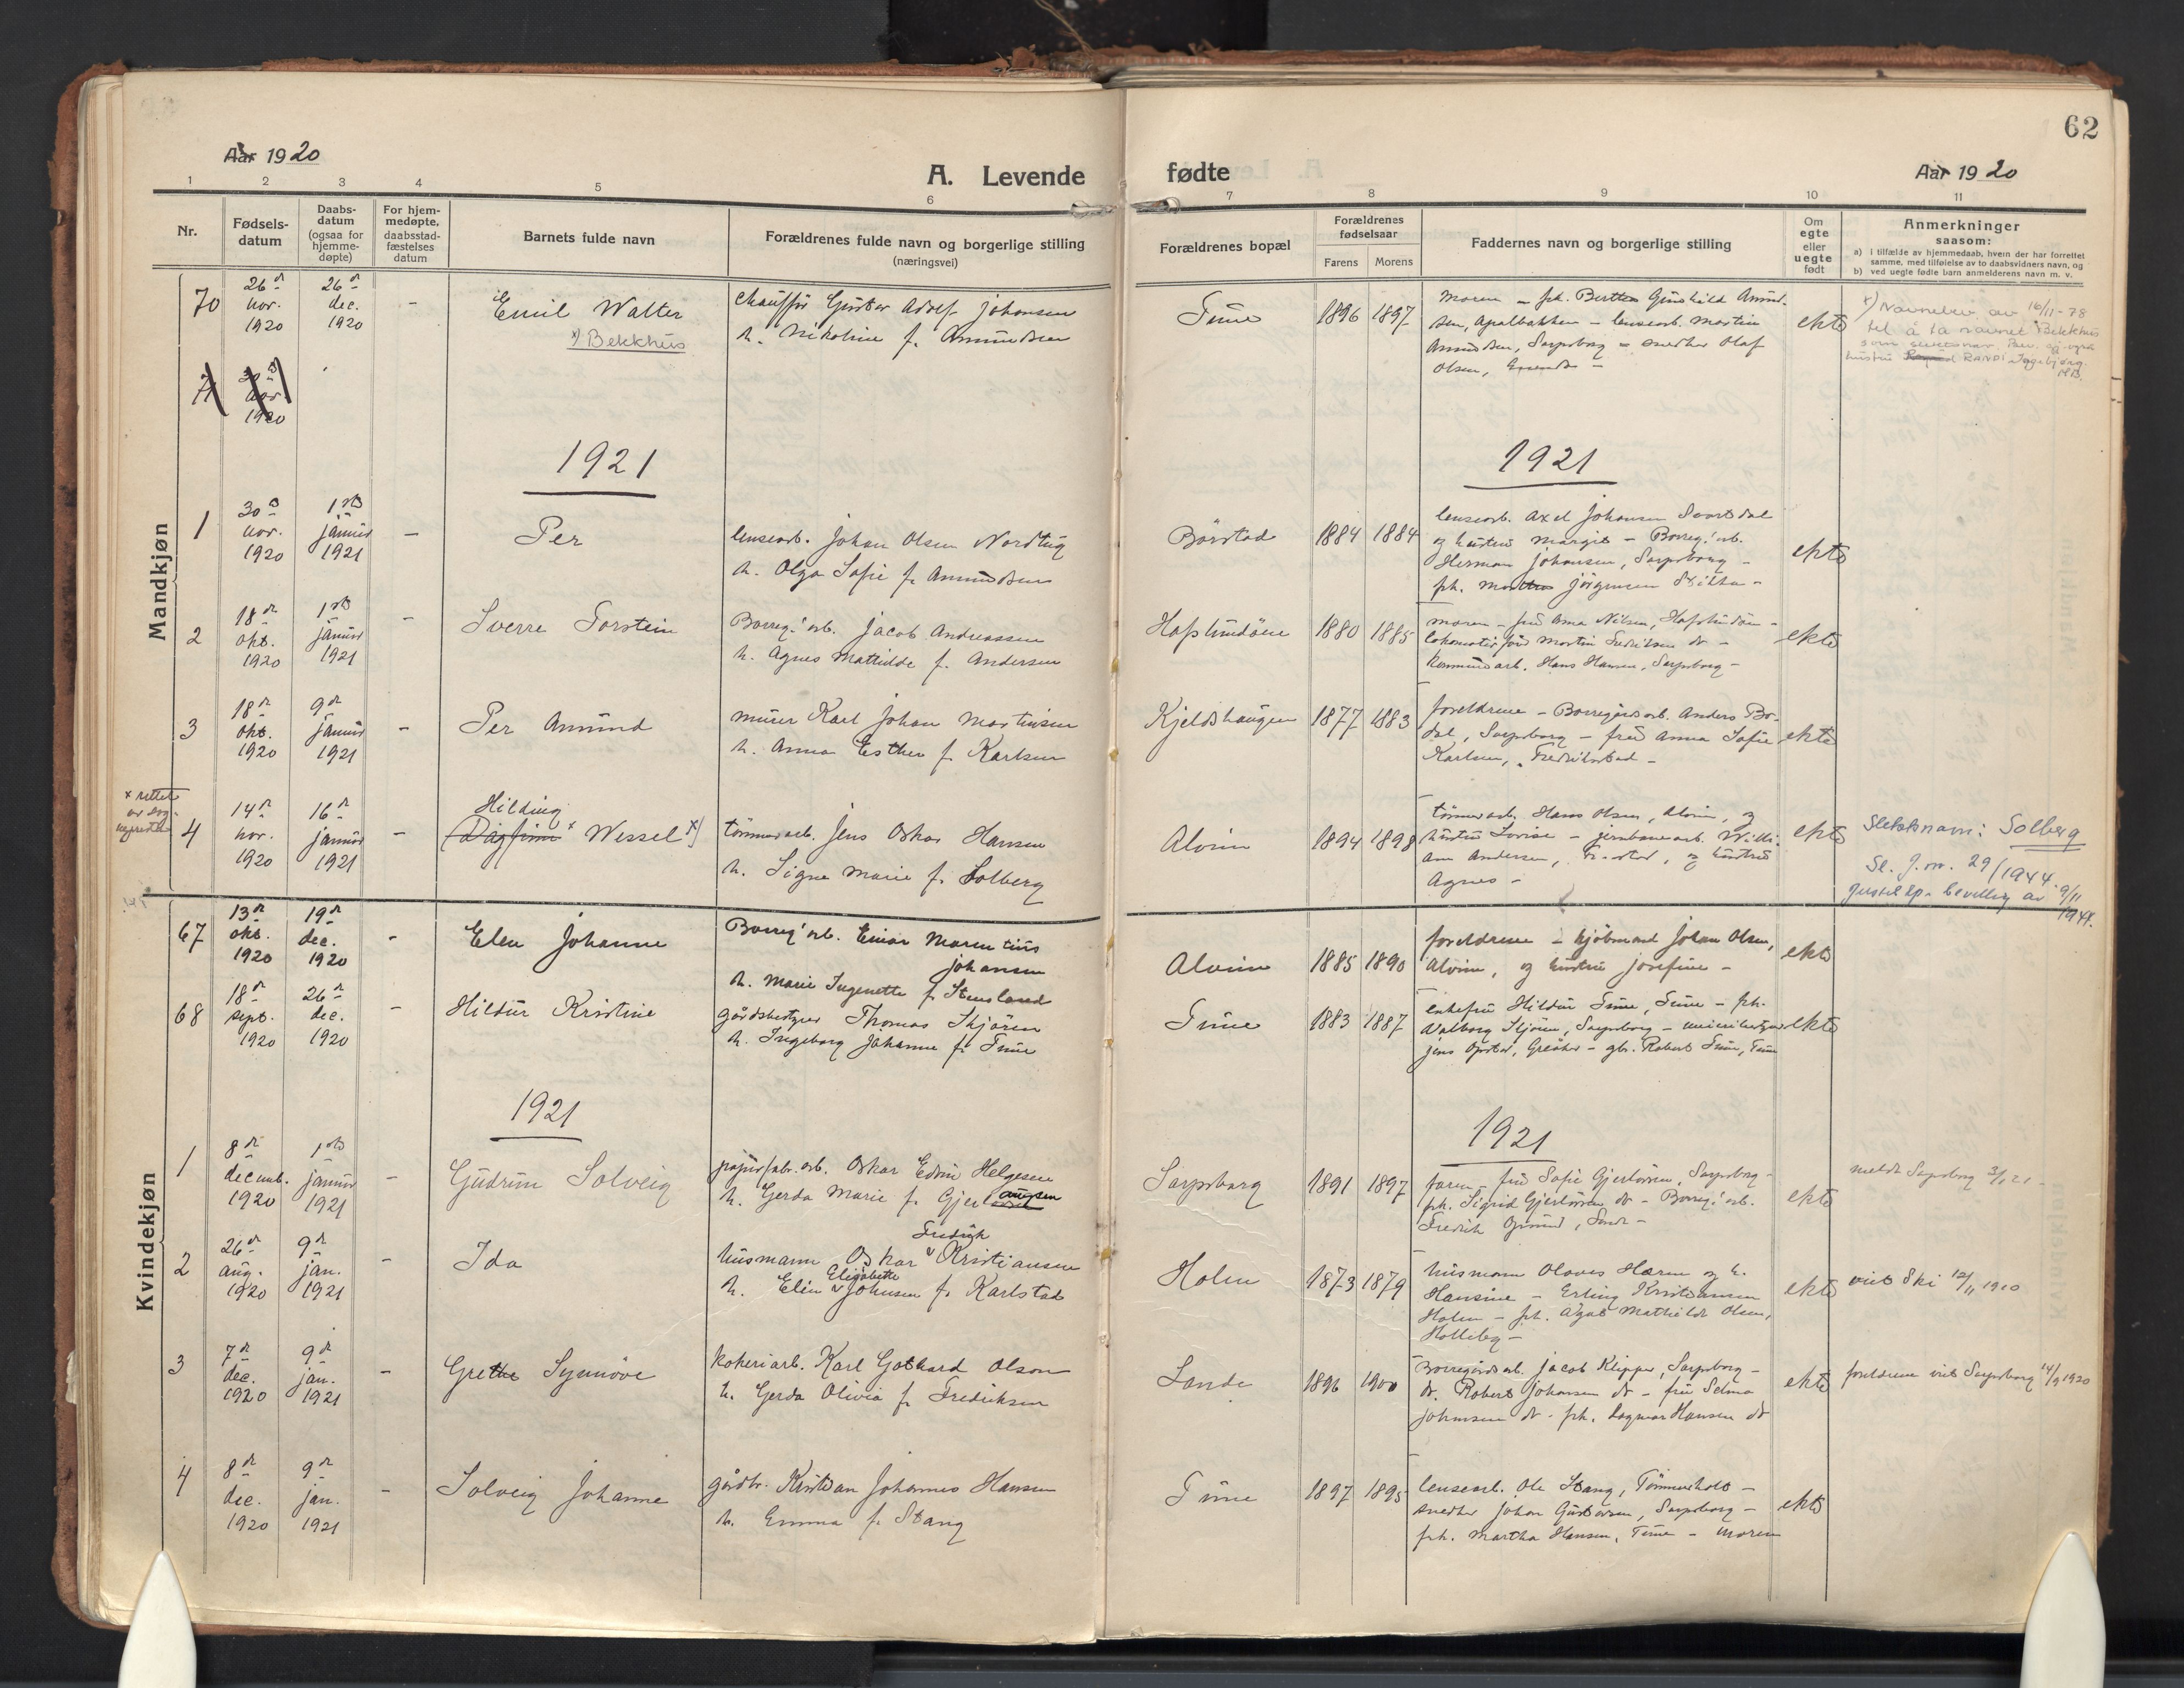 62
Aar 1920
A. Levende
fødte
Aar 1920
1 2 3 4 5 6 7 8 9 10 11
Nr.
Fødsels-
datum
Daabs-
datum
(ogsaa for
hjemme-
døpte)
For hjem-
medøpte,
daabsstad-
fæstelses
datum
Barnets fulde navn
Forældrenes fulde navn og borgerlige stilling
(næringsvei)
Forældrenes bopæl
Forældrenes
fødselsaar
Farens Morens
Faddernes navn og borgerlige stilling
Om
egte
eller
uegte
født
Anmerkninger
saasom:
a) i tilfælde av hjemmedaab, hvem der har forrettet
samme, med tilføielse av to daabsvidners navn, og
b) ved uegte fødte barn anmelderens navn m. v.
Mandkjøn
70
26de
nov.
1920
26de
dec.
1920
-
Emil Walter
x) Bekkhus
chauffør Gustav Adolf Johansen
h. Nikoline f. Amundsen
Tune
1896 1897
moren - frk. Berthea Gunhild Amund-
sen, Apalbakken - lensearb. Martin
Amundsen, Sarpsborg - snedker Olaf
Olsen,
ekte
x) Navnebev. av 16/11-78
til å ta navnet Bekkhus
som slektsnavn. Bev. og også
hustru RANDI Ingebjørg
71
30te
nov.
1920
1921
1921
1
30te
nov.
1920
1ste
januar
1921
-
Per
lensearb. Johan Olsen Nordtug
h. Olga Sofie f. Amundsen
Børstad
1884 1884
lensearb. Axel Johansen Svartdal
og hustru Margit - Borreg.' arb.
Herman Johansen, Sarpsborg -
frk. Marthea Jørgensen
ekte
2
18de
okt.
1920
1ste
januar
1921
-
Sverre Torstein
Borreg.' arb. Jacob Andreassen
h. Agnes Mathilde f. Andersen
Hafslundøen
1880 1885
moren - frû Anna Nilsen, Hafslundøen -
lokomotivfører Martin Fredriksen do -
kommunearb. Hans Hansen, Sarpsborg -
ekte
3
18de
okt.
1920
9de
januar
1921
-
Per Amund
murer Karl Johan Martinsen
h. Anna Esther f. Karlsen
Kjeldshaugen
1877 1883
foreldrene - Borregårdsarb. Anders Bo-
dal, Sarpsborg - frû Anna Sofie
Karlsen, Fredrikstad -
ekte
x rettet
av sog-
nepresten
4
14de
nov.
1920
16de
januar
1921
-
Hilding
Dagfinn x Wessel x)
tømmerarb. Jens Oskar Hansen
h. Signe Marie f. Solberg
Alvim
1894 1898
tømmerarb. Hans Olsen, Alvim, og
hustru Lovise - jernbanearb. Willi-
am Andersen, Fr.stad, og hustru
Agnes -
ekte
Slektsnavn: Solberg
Se. J.nr. 29/1944.
Justisdp. bevilling av 9/11
1944.
Kvindekjøn
67
13de
okt.
1920
19de
dec.
1920
-
Elen Johanne
Borreg' arb. Einar Marentius
Johansen
h. Marie Ingenette f. Stensland
Alvim
1885 1890
foreldrene - kjøbmand Johan Olsen,
Alvim, og hustru Josefine -
ekte
68
18de
sept.
1920
26de
dec.
1920
-
Hildur Kristine
gårdsbestyrer Thomas Skjøren
h. Ingeborg Johanne f. Tune
Tune
1883 1887
enkefrû Hildur Tune, Tune - frk.
Valborg Skjøren, Sarpsborg - meieribestyrer
Jens Opstad, Greåker - gbr. Robert Tune, Tune
ekte
1921
1921
1
8de
decemb.
1920
1ste
januar
1921
-
Gudrun Solveig
papirfabr. arb. Oskar Edvin Helgesen
h. Gerda Marie f. Gjerlaugsen
Sarpsborg
1891 1897
faren - frû Sofie Gjerløwsen, Sarpsborg -
frk. Sigrid Gjerløwsen do - Borreg.' arb.
Fredrik
ekte
meldt Sarpsborg 3/1 21 -
2
26de
aug.
1920
9de
jan.
1921
-
Ida
Fredrik
husmann Oskar v Kristiansen
Elisabeth
h. Elin v Johnsen f. Karlstad
Holm
1873 1879
husmann Olaves Haren og h.
Hansine - Erling Kristiansen
Holm - frk. Agat Mathilde Olsen,
Holleby -
ekte
viet Ski 12/11 1910
3
7de
dec.
1920
9de
jan.
1921
-
Grethe Synnøve
kokeriarb. Karl Gothard Olson
h. Gerda Olivia f. Fredriksen
Lande
1896 1900
Borregårdsarb. Jacob Klipper, Sarpsborg -
do. Robert Johansen do - frû Selma
Johansen do - frk. Dagmar Hansen do
ekte
foreldrene viet Sarpsborg 14/9 1920
4
8de
dec.
1920
9de
jan.
1921
-
Solveig Johanne
gårdbr. Kristian Johannes Hansen
h. Emma f. Stang
Tune
1897 1895
lensearb. Ole Stang, Tømmerholt -
snedker Johan Gustavsen, Sarpsborg -
frk. Martha Hansen, Tune - moren
ekte